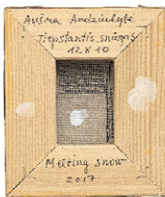 Aušra Andziulytė
Tirpstantis sniegas
12 x 10
Melting snow
2017